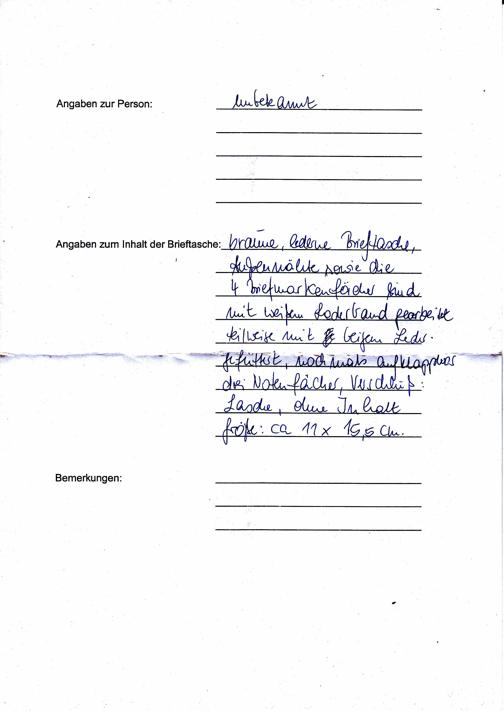 Angaben zur Person: Unbekannt
Angaben zum Inhalt der Brieftasche: braune, lederne Brieftasche,
Außennähte sowie die
4 Briefmarkenfächer sind
mit weißem Lederband gearbeitet
teilweise mit beigem Leder
gefüttert, nochmals aufklappbar
drei Notenfächer, Verschluß:
Lasche, ohne Inhalt
Größe: ca 11 x 15,5 cm.
Bemerkungen: